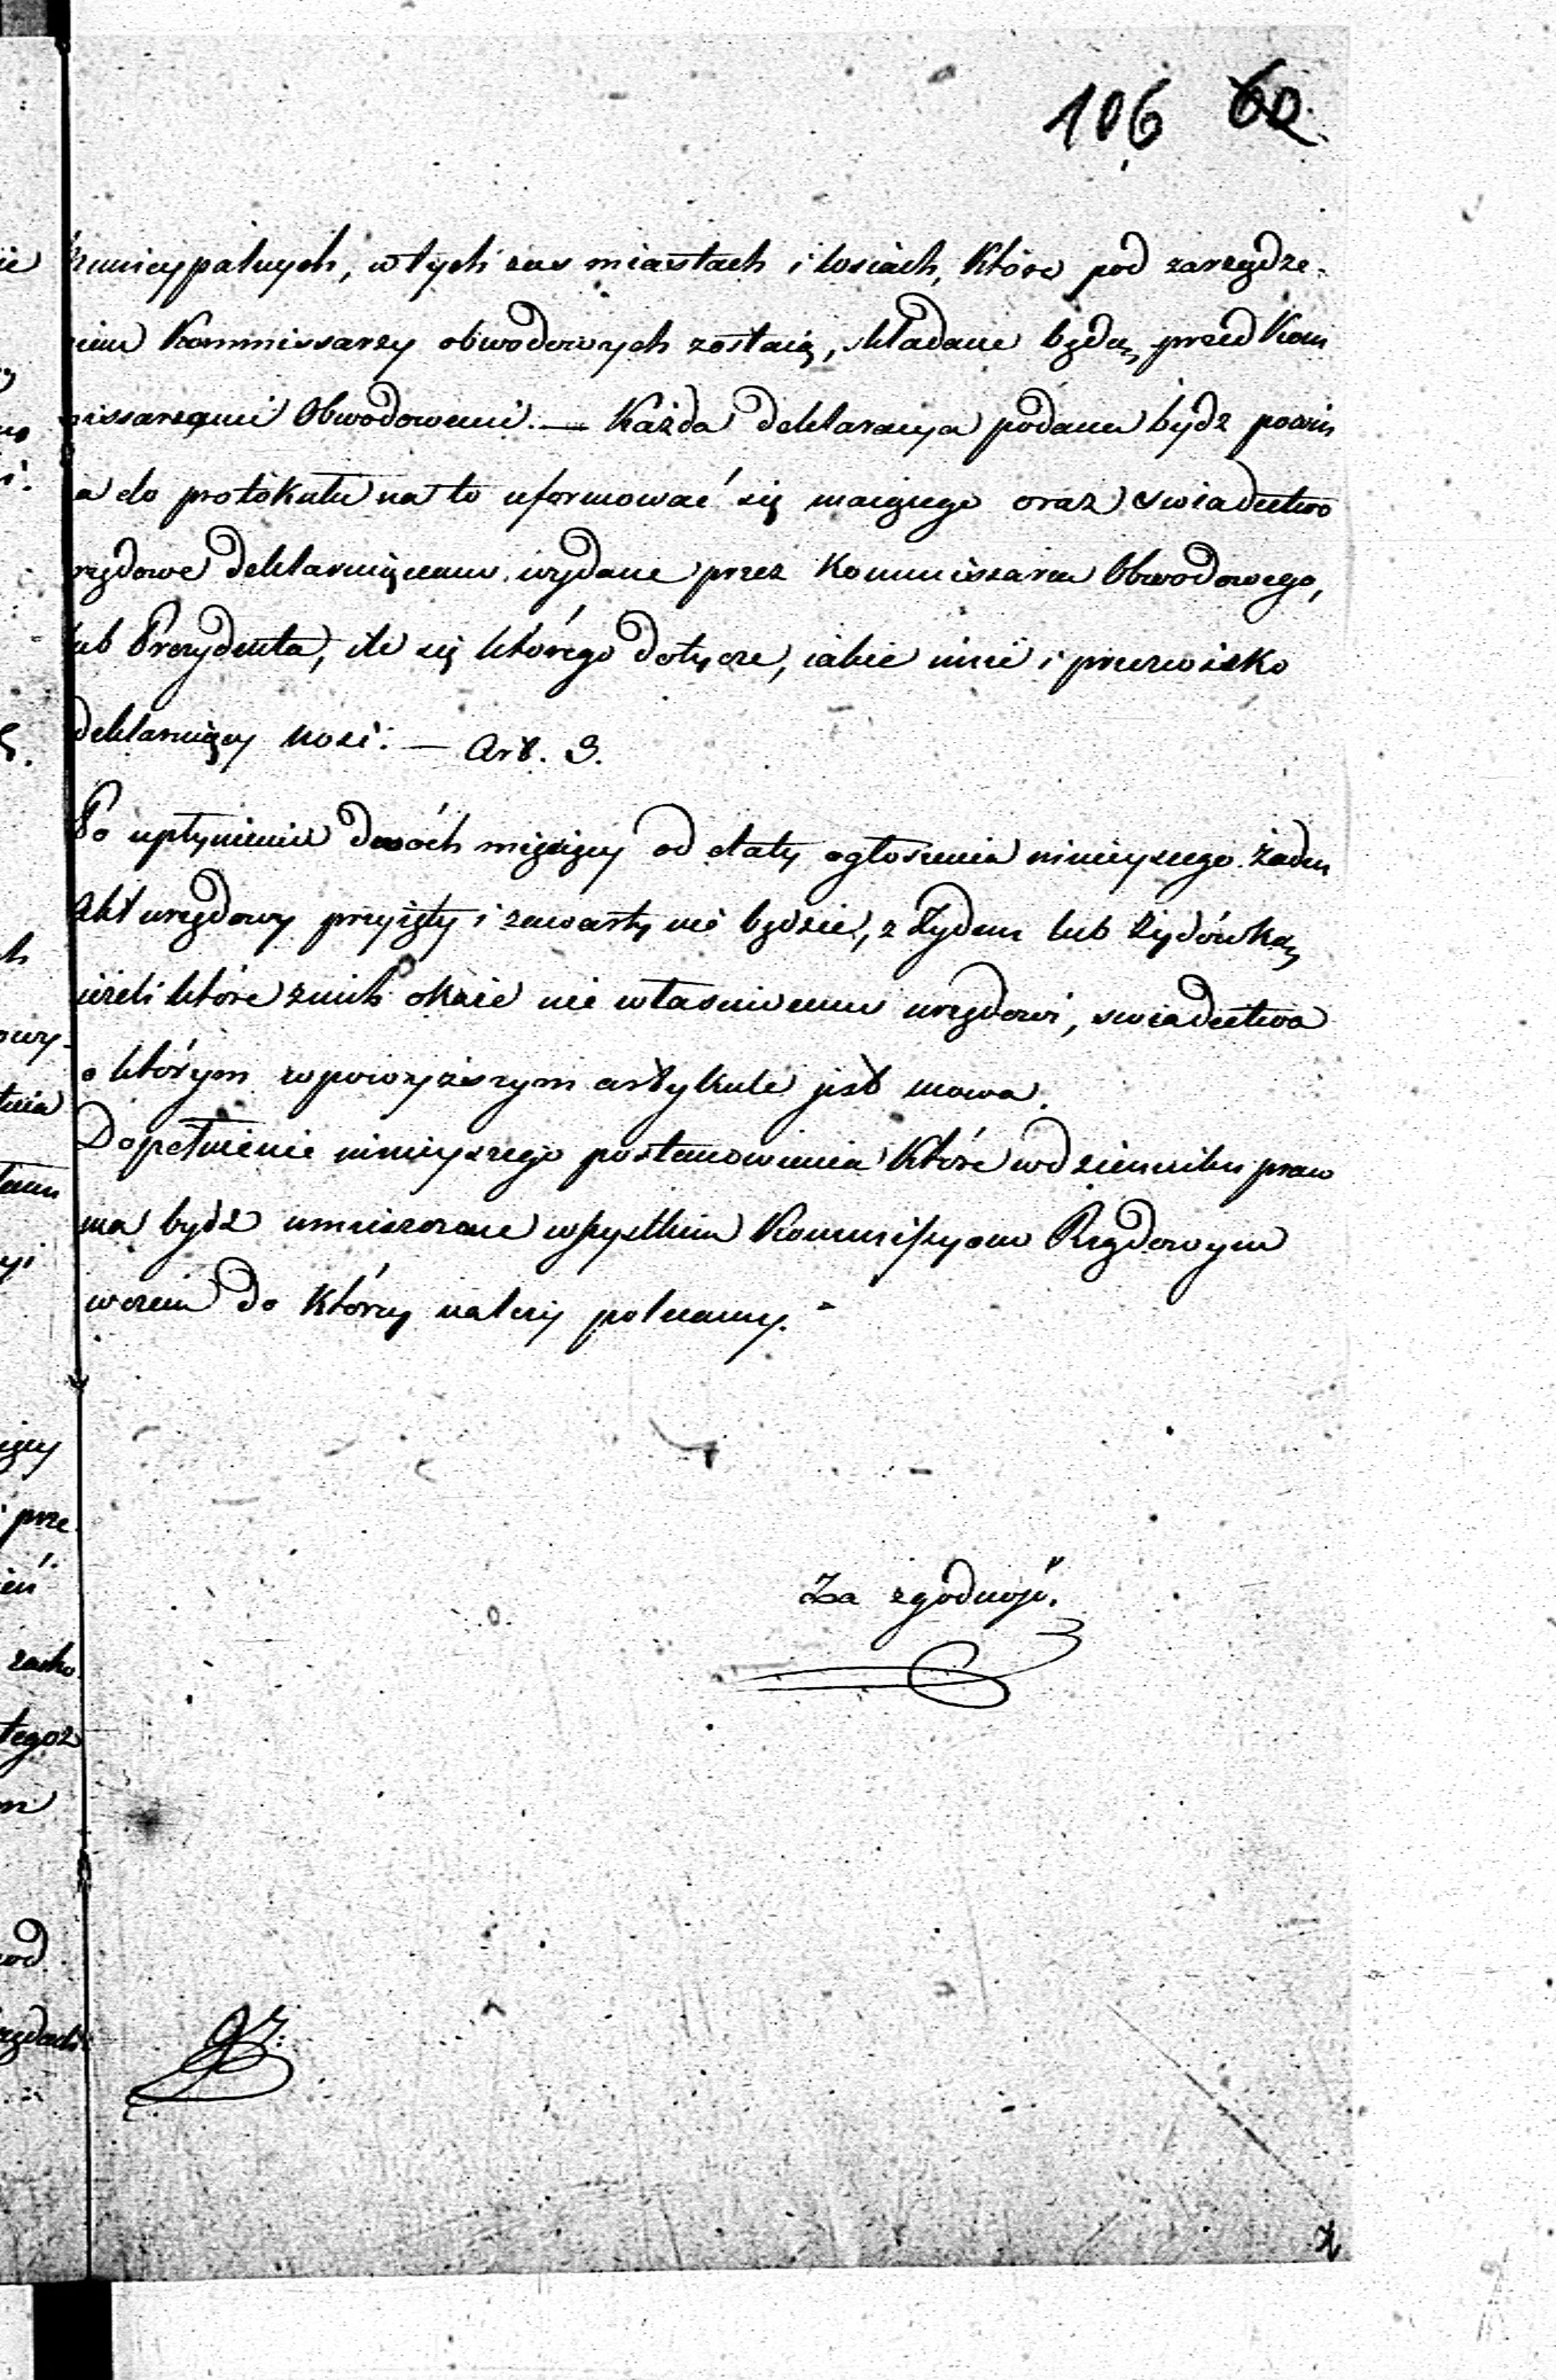 106 60
municypalnych, w tych zas miastach i wsiach, które pod zarządze-
niem Kommissarzy obwodowych zostaią, składane będą przed Kom
missarzami Obwodowemi. — Każda deklaracya podana bydz powin
na do protokułu na to uformować się maiącego oraz swiadectwo
urzędowe deklaruiącemu wydane przez Kommissarza Obwodowego,
lub Prezydenta, ile się którego dotycze, iakie imie i przezwisko
deklaruiący nosi. — Art. 3.
Po upłynieniu dwóch miesięcy od daty ogłoszenia ninieyszego żaden
Akt urzędowy przyięty i zawarty nie będzie, z Żydem lub Żydówką
ieżeli które z nich okaże nie własciwemu urzędowi, swiadectwa
o którym w powyższym artykule jest mowa.
Dopełnienie ninieyszego postanowienia które w dzienniku praw
ma bydz umieszczone wszystkim Kommissyom Rządowym
w czem do którey należy polecamy.
Za zgodność.